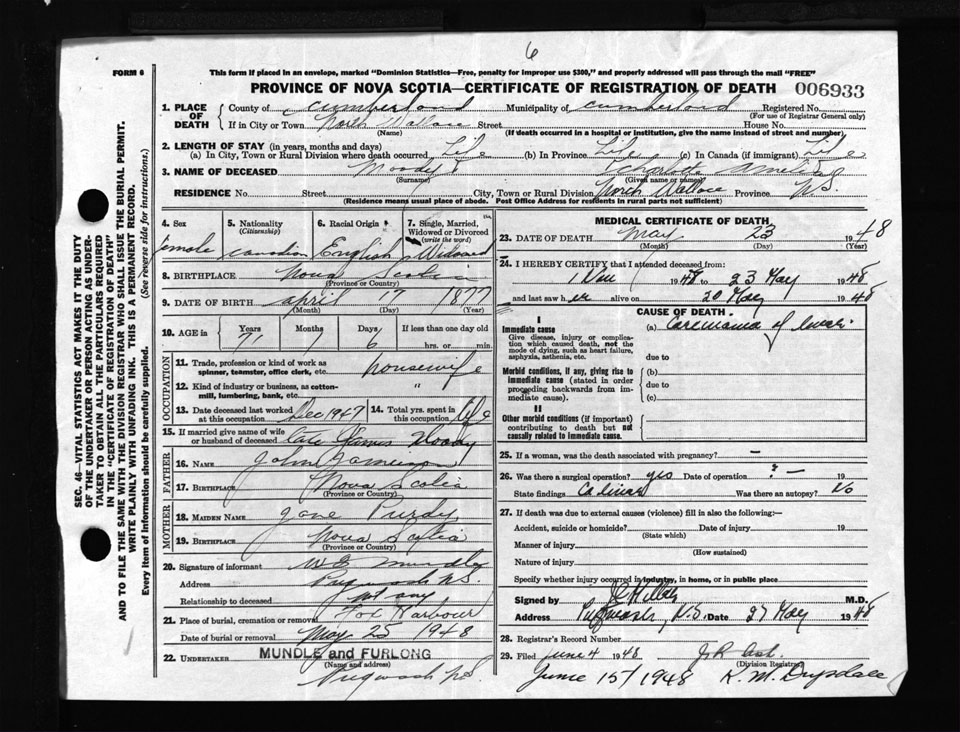 6
FORM 6
This form if placed in an envelope, marked "Dominion Statistics—Free, penalty for improper use $300," and properly addressed will pass through the mail "FREE"
PROVINCE OF NOVA SCOTIA—CERTIFICATE OF REGISTRATION OF DEATH 006933
SEC. 46—VITAL STATISTICS ACT MAKES IT THE DUTY
OF THE UNDERTAKER OR PERSON ACTING AS UNDER-
TAKER TO OBTAIN ALL THE PARTICULARS REQUIRED
IN THE "CERTIFICATE OF REGISTRATION OF DEATH"
AND TO FILE THE SAME WITH THE DIVISION REGISTRAR WHO SHALL ISSUE THE BURIAL PERMIT.
WRITE PLAINLY WITH UNFADING INK. THIS IS A PERMANENT RECORD.
Every item of information should be carefully supplied. (See reverse side for instructions.)
1. PLACE OF DEATH County of Cumberland Municipality of Cumberland Registered No.
(For use of Registrar General only)
If in City or Town North Wallace Street House No.
(Name) (If death occurred in a hospital or institution, give the name instead of street and number)
2. LENGTH OF STAY (in years, months and days)
(a) In City, Town or Rural Division where death occurred Life (b) In Province Life (c) In Canada (if immigrant) Life
3. NAME OF DECEASED Moody
(Surname) (Given name or names)
RESIDENCE No. Street City, Town or Rural Division North Wallace Province N.S.
(Residence means usual place of abode. Post Office Address for residents in rural parts not sufficient)
4. Sex 5. Nationality (Citizenship) 6. Racial Origin 7. Single, Married, Widowed or Divorced (write the word)
Female Canadian English Widowed
8. BIRTHPLACE Nova Scotia
(Province or Country)
9. DATE OF BIRTH April 17 1877
(Month) (Day) (Year)
10. AGE in Years Months Days If less than one day old
71 1 6 hrs. or min.
OCCUPATION
11. Trade, profession or kind of work as spinner, teamster, office clerk, etc. housewife
12. Kind of industry or business, as cotton-mill, lumbering, bank, etc. "
13. Date deceased last worked at this occupation Dec 1947 14. Total yrs. spent in this occupation life
15. If married give name of wife or husband of deceased late James Moody
FATHER
16. NAME John
17. BIRTHPLACE Nova Scotia
(Province or Country)
MOTHER
18. MAIDEN NAME Jane Purdy
19. BIRTHPLACE Nova Scotia
(Province or Country)
20. Signature of informant
Address Pugwash N.S.
Relationship to deceased Not any
21. Place of burial, cremation or removal Fox Harbour
Date of burial or removal May 25 1948
22. UNDERTAKER MUNDLE and FURLONG
(Name and address)
Pugwash N.S.
MEDICAL CERTIFICATE OF DEATH
23. DATE OF DEATH May 23 1948
(Month) (Day) (Year)
24. I HEREBY CERTIFY that I attended deceased from:
1948 to 23 May 1948
and last saw her alive on 20 May 1948
CAUSE OF DEATH
I
Immediate cause (a) of
Give disease, injury or complication which caused death, not the mode of dying, such as heart failure, asphyxia, asthenia, etc. due to
Morbid conditions, if any, giving rise to immediate cause (stated in order proceeding backwards from immediate cause). (b) due to (c)
II
Other morbid conditions (if important) contributing to death but not causally related to immediate cause.
25. If a woman, was the death associated with pregnancy? —
26. Was there a surgical operation? yes Date of operation ? — 19
State findings Was there an autopsy? No
27. If death was due to external causes (violence) fill in also the following:—
Accident, suicide or homicide? Date of injury 19
(State which)
Manner of injury
(How sustained)
Nature of injury
Specify whether injury occurred in industry, in home, or in public place
Signed by M.D.
Address Pugwash, N.S. Date 27 May 1948
28. Registrar's Record Number
29. Filed June 4 1948
(Division Registrar)
June 15/1948 K. M. Drysdale